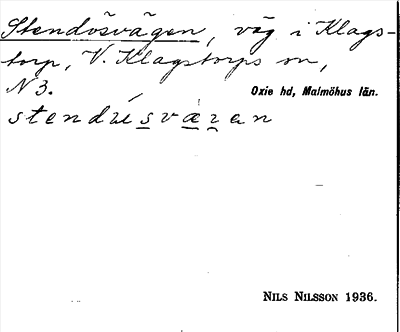 Stendösvägen, väg i Klags-
torp, V. Klagstorps sn,
N3.
Oxie hd, Malmöhus län.
NILS NILSSON 1936.